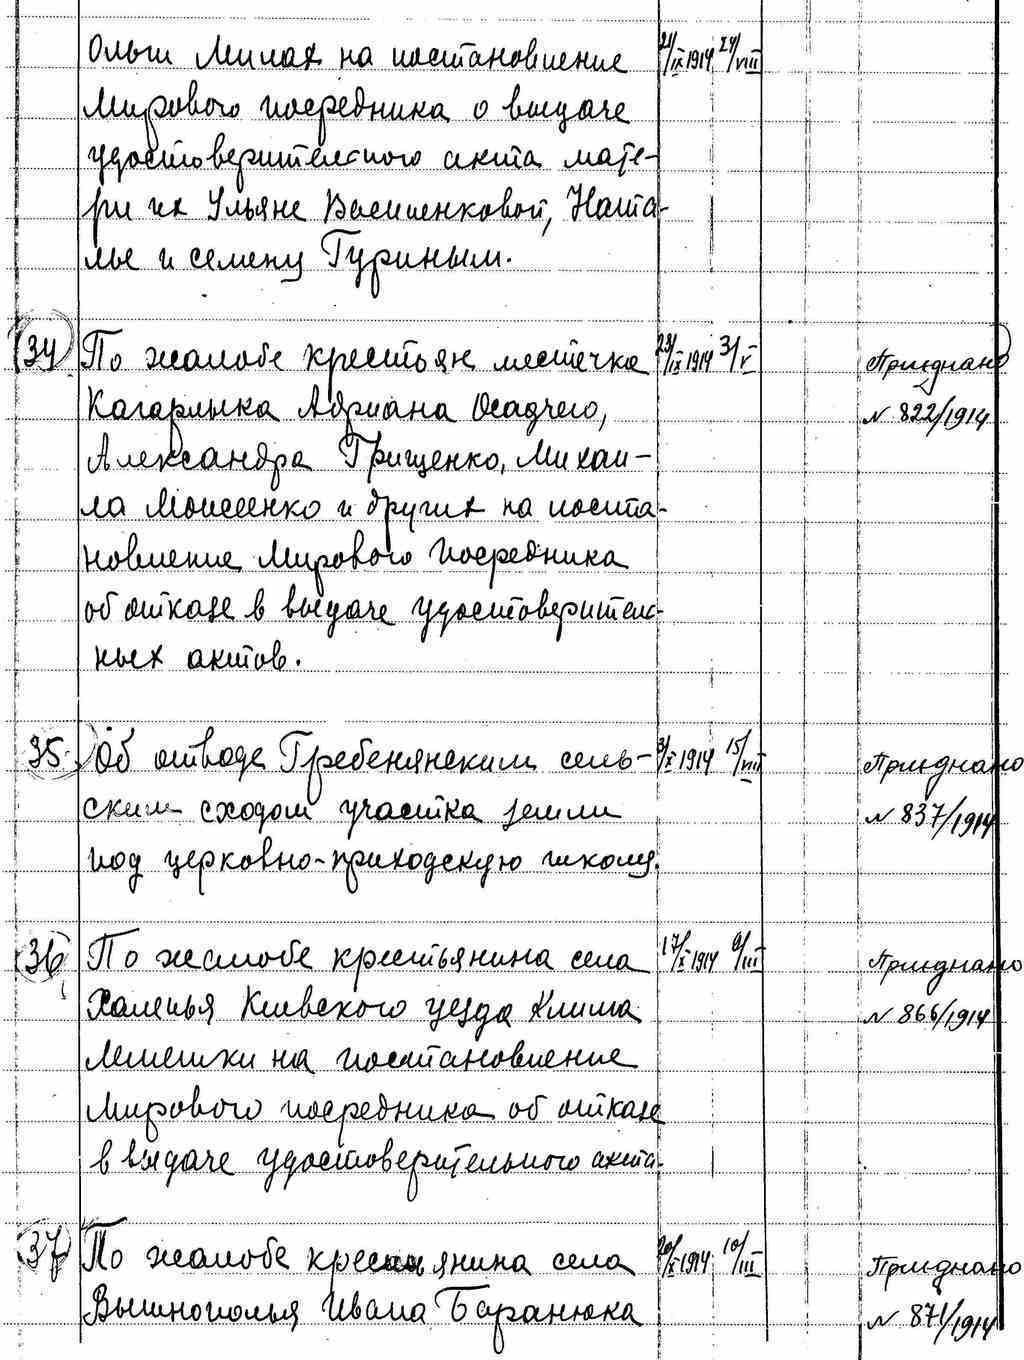 Ольги Милах на постановление 21/IX 1914 24/VIII
Мирового посредника о выдаче
удостоверительного акта мате-
ри их Ульяне Василенковой, Ната-
лье и Семену Гуриным.
34 По жалобе крестьян местечка 23/IX 1914 3/V Приєднано
Кагарлыка Адриана Осадчего, N 822/1914
Александра Грищенко, Михаи-
ла Моисеенко и других на поста-
новление Мирового посредника
об отказе в выдаче удостоверитель-
ных актов.
35 Об отводе Гребенянским сель- 3/X 1914 15/VIII Приєднано
ским сходом участка земли N 837/1914
под церковно-приходскую школу.
36 По жалобе крестьянина села 17/X 1914 9/III Приєднано
Халепья Киевского уезда Клима N 866/1914
Лемешки на постановление
Мирового посредника об отказе
в выдаче удостоверительного акта.
37 По жалобе крестьянина села 20/X 1914 10/III Приєднано
Вышнополья Ивана Баранюка N 871/1914